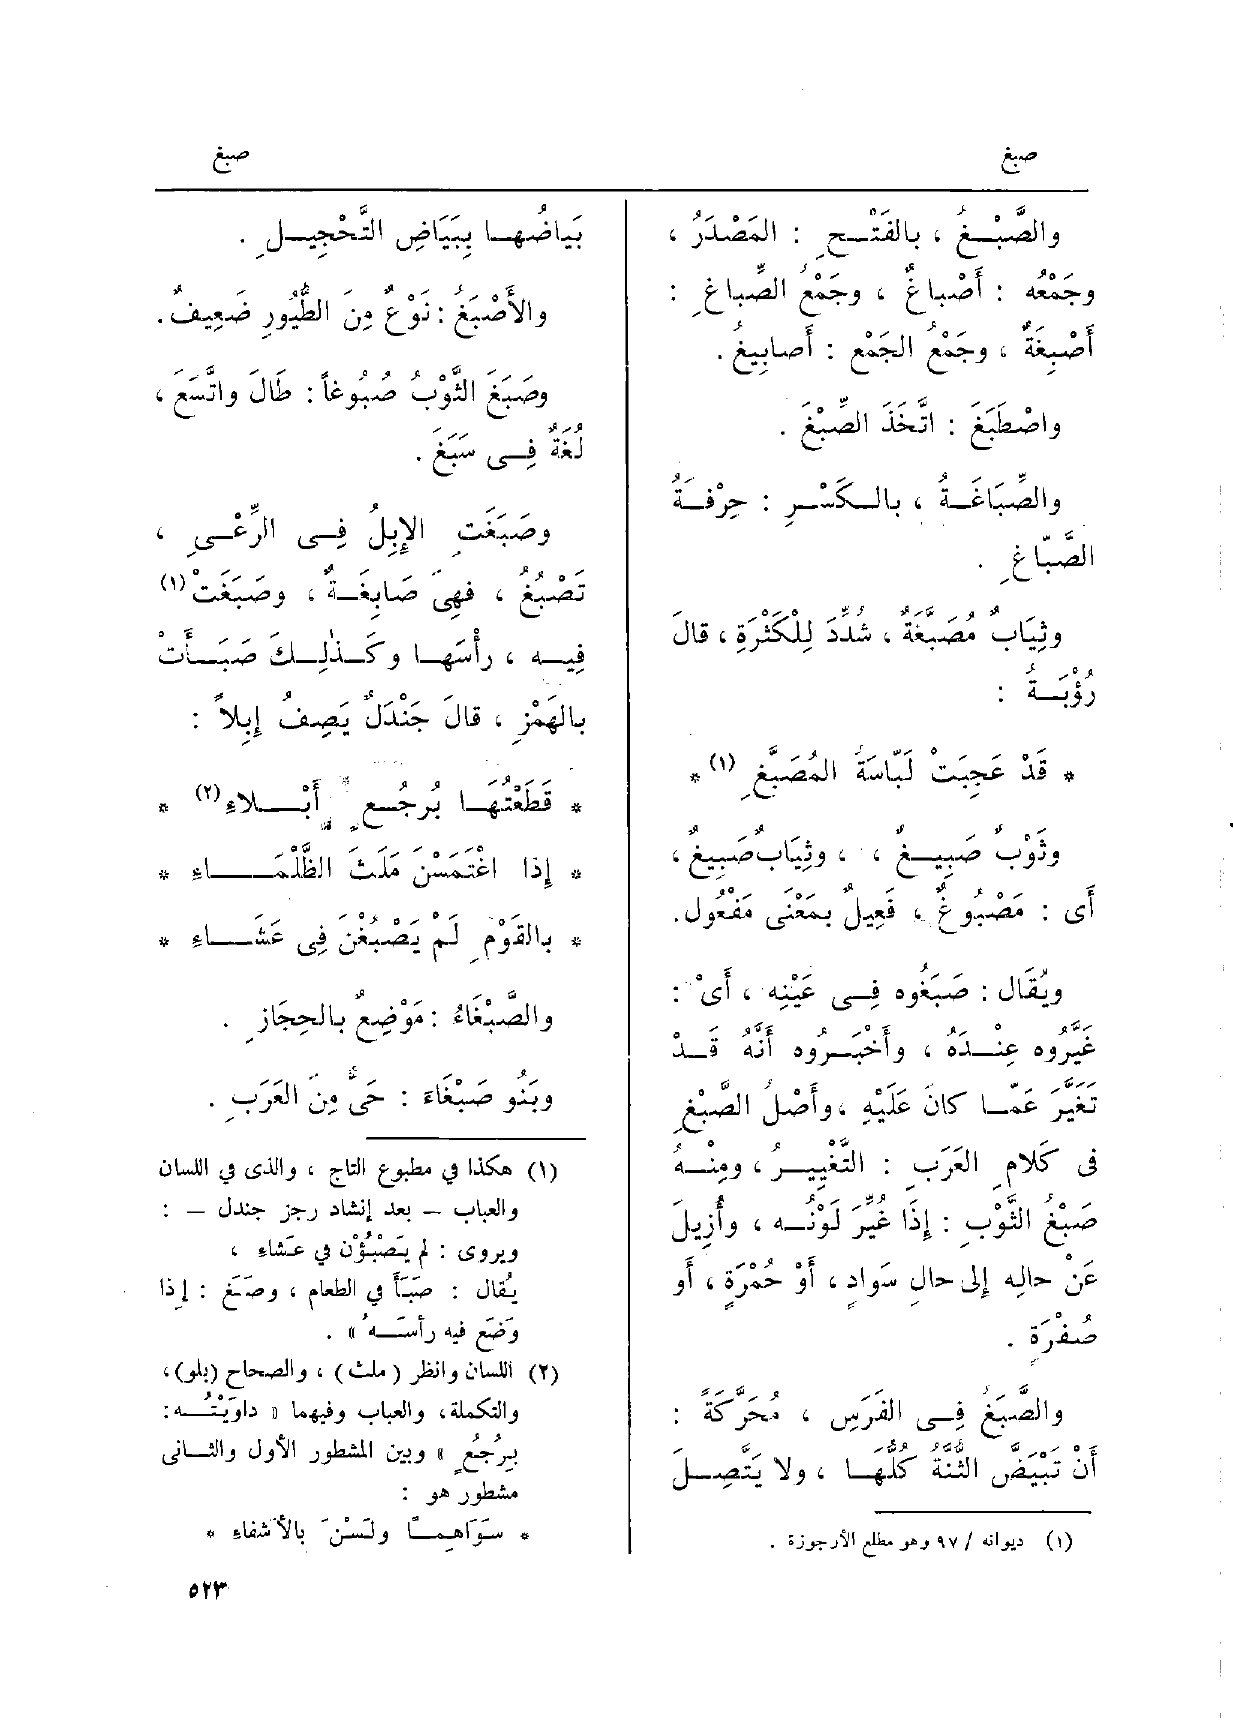 صبغ
صبغ
والصَّبْـغُ ، بالفَتْـحِ : المَصْدَرُ ،
وجَمْعُه : أَصْباغٌ ، وجَمْعُ الصِّباغِ :
أَصْبِغَةٌ ، وجَمْعُ الجَمْعِ : أَصابِيغُ .
واصْطَبَغَ : اتَّخَذَ الصِّبْغَ .
والصِّبَاغَـةُ ، بالـكَسْـرِ : حِرْفَـةُ
الصَّبّاغِ .
وثِيَابٌ مُصَبَّغَةٌ ، شُدِّدَ لِلْكَثْرَةِ ، قالَ
رُؤْبَـةُ :
* قَدْ عَجِبَتْ لَبّاسَةُ المُصَبَّغِ (١) *
وثَوْبٌ صَبِيـغٌ ، ، وثِيَابٌ صَبِيغٌ ،
أَى : مَصْبُوغٌ ، فَعِيلٌ بمَعْنَى مَفْعُول.
ويُقَال : صَبَغُوه فِـى عَيْنِه ، أَىْ :
غَيَّرُوه عِنْـدَهُ ، وأَخْبَـرُوه أَنَّهُ قَـدْ
تَغَيَّرَ عَمّـا كانَ عَلَيْهِ ، وأَصْلُ الصَّبْغِ
فى كَلامِ العَرَبِ : التَّغْيِيـرُ ، ومِنْـهُ
صَبْغُ الثَّوْبِ : إِذَا غُيِّرَ لَوْنُـه ، وأُزِيلَ
عَنْ حالِه إلى حالِ سَوادٍ ، أَوْ حُمْرَةٍ ، أَو
صُفْرَةٍ .
والصَّبَغُ فِـى الفَرَسِ ، مُحَرَّكَةً :
أَنْ تَبْيَضَّ الثُّنَّةُ كُلُّهـا ، ولا يَتَّصِـلَ
(١) ديوانه / ٩٧ وهو مطلع الأرجوزة .
بَياضُهـا بِبَيَاضِ التَّحْجِيـلِ .
والأَصْبَغُ : نَوْعٌ مِنَ الطُّيُورِ ضَعِيفٌ.
وصَبَغَ الثَّوْبُ صُبُوغاً : طَالَ واتَّسَعَ ،
لُغَةٌ فِـى سَبَغَ .
وصَبَغَتِ الإِبِلُ فِـى الرِّعْـىِ ،
تَصْبُغُ ، فهِىَ صَابِغَـةٌ ، وصَبَغَتْ (١)
فِيـه ، رأْسَهـا وكَـذٰلِـكَ صَبَـأَتْ
بالهَمْزِ ، قالَ جَنْدَلٌ يَصِفُ إِبِلاً :
* قَطَعْتُهَـا بُرجُـعٍ أَبْـلاءِ (٢) *
* إِذا اغْتَمَسْنَ مَلَثَ الظَّلْمَـاءِ *
* بالقَوْمِ لَمْ يَصْبُغْنَ فِى عَشَـاءِ *
والصَّبْغَاءُ : مَوْضِعٌ بالحِجَازِ .
وبَنُو صَبْغَاءَ : حَىٌّ مِنَ العَرَبِ .
(١) هكذا في مطبوع التاج ، والذى في اللسان
والعباب – بعد إنشاد رجز جندل – :
ويروى : لم يَصْبُؤْن في عَشاء ،
يُقال : صَبَأَ في الطعام ، وصَبَغ : إذا
وَضَع فيه رأْسَـهُ » .
(٢) اللسان وانظر (ملث) ، والصحاح (بلو)،
والتكملة، والعباب وفيهما « داوَيْتُـه :
بِرُجُعٍ » وبين المشطور الأول والثـانى
مشطور هو :
* سَوَاهِمـًا ولَسْنَ بالأَشفاء *
٥٢٣